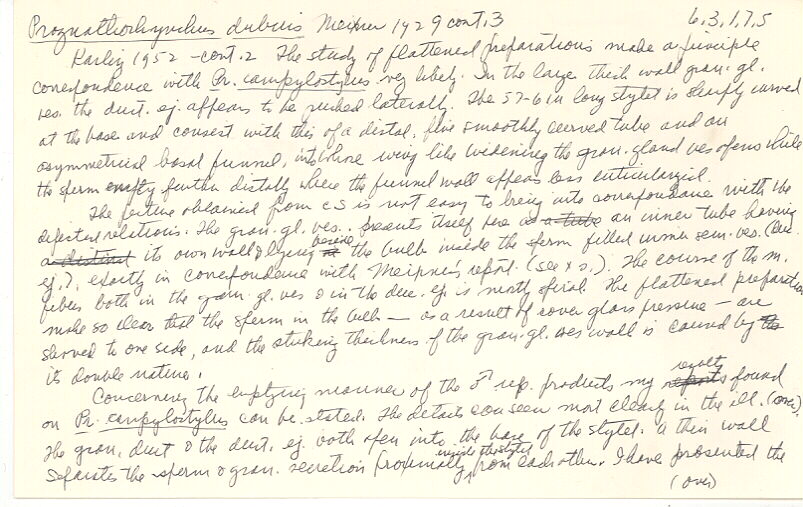 Prognathorhynchus dubius Meixner 1929 cont. 3 6.3.1.7.5
Karling 1952 - cont. 2 The study of flattened preparations make a principle
correspondence with Pr. campylostylus very likely. In the large thick wall gran. gl.
ves. the duct. ej. appears to be pushed laterally. The 57-61 m long stylet is sharply curved
at the base and consist with this of a distal, fine smoothly curved tube and an
asymmetrical basal funnel, into whose wing like widening the gran. gland ves opens while
the sperm empty further distally where the funnel wall appears less cuticularized.
The picture obtained from cS is not easy to bring into correspondance with the
depicted relations. The gran. gl. ves. presents itself here as a tube an inner tube having
a distinct its own wall & lying beside in the bulb inside the sperm filled inner sem. ves. (duc.
ej.?, exactly in correspondence with Meixner's report. (see x s.). The course of the m.
fibers both in the gran. gl. ves & in the duc. ej. is mostly spiral. The flattened preparations
make so clear that the sperm in the bulb — as a result of cover glass pressure — are
shoved to one side, and the striking thickness of the gran. gl. ves wall is caused by the
its double nature.
Concerning the emptying manner of the ♂ rep. products my reports result found
on Pr. campylostylus can be stated. The details can seen most clearly in the ill. (over).
The gran. duct & the duct. ej. both open into the base of the stylet. A thin wall
separates the sperm & gran. secretion proximally inside the stylet from each other. I have presented the
(over)